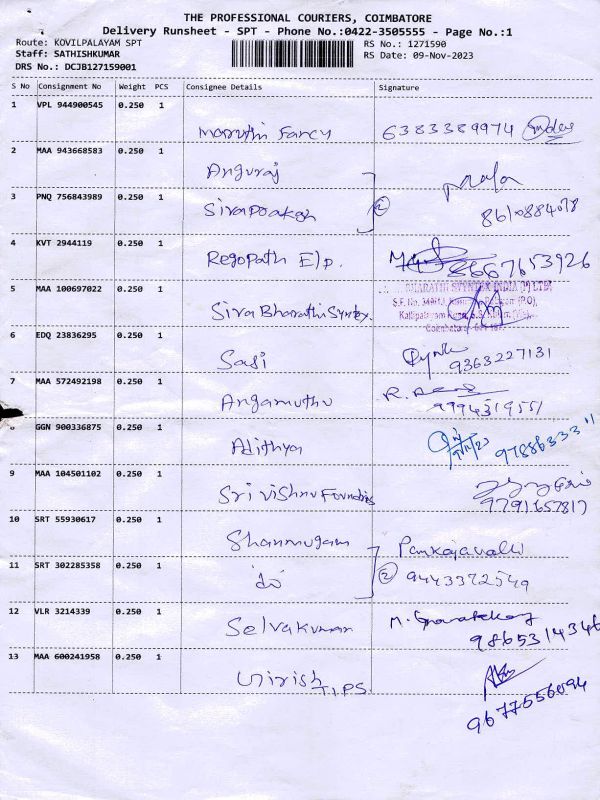 THE PROFESSIONAL COURIERS, COIMBATORE
Delivery Runsheet - SPT - Phone No.:0422-3505555 - Page No.:1
Route: KOVILPALAYAM SPT RS No.: 1271590
Staff: SATHISHKUMAR RS Date: 09-Nov-2023
DRS No.: DCJB127159001
S No Consignment No Weight PCS Consignee Details Signature
1 VPL 944900545 0.250 1
Maruthi Fancy 6383389974
2 MAA 943668583 0.250 1
Anguraj
3 PNQ 756843989 0.250 1
Sivaprakash 2
4 KVT 2944119 0.250 1
Regopath E/p. 8667653926
5 MAA 100697022 0.250 1
BHARATHI SYNTEX INDIA (P) LTD
Siva Bharathi Syntex.
Coimbatore
6 EDQ 23836295 0.250 1
Sasi 9363227131
7 MAA 572492198 0.250 1
Angamuthu 9994319551
8 GGN 900336875 0.250 1
Adithya
9 MAA 104501102 0.250 1
Sri Vishnu Foundries 9791657817
10 SRT 55930617 0.250 1
Shanmugam Pankajavalli
11 SRT 302285358 0.250 1
do 2 9443372549
12 VLR 3214339 0.250 1
Selvakumar M.
9865314346
13 MAA 600241958 0.250 1
Girish T.I.P.S.
9677556094